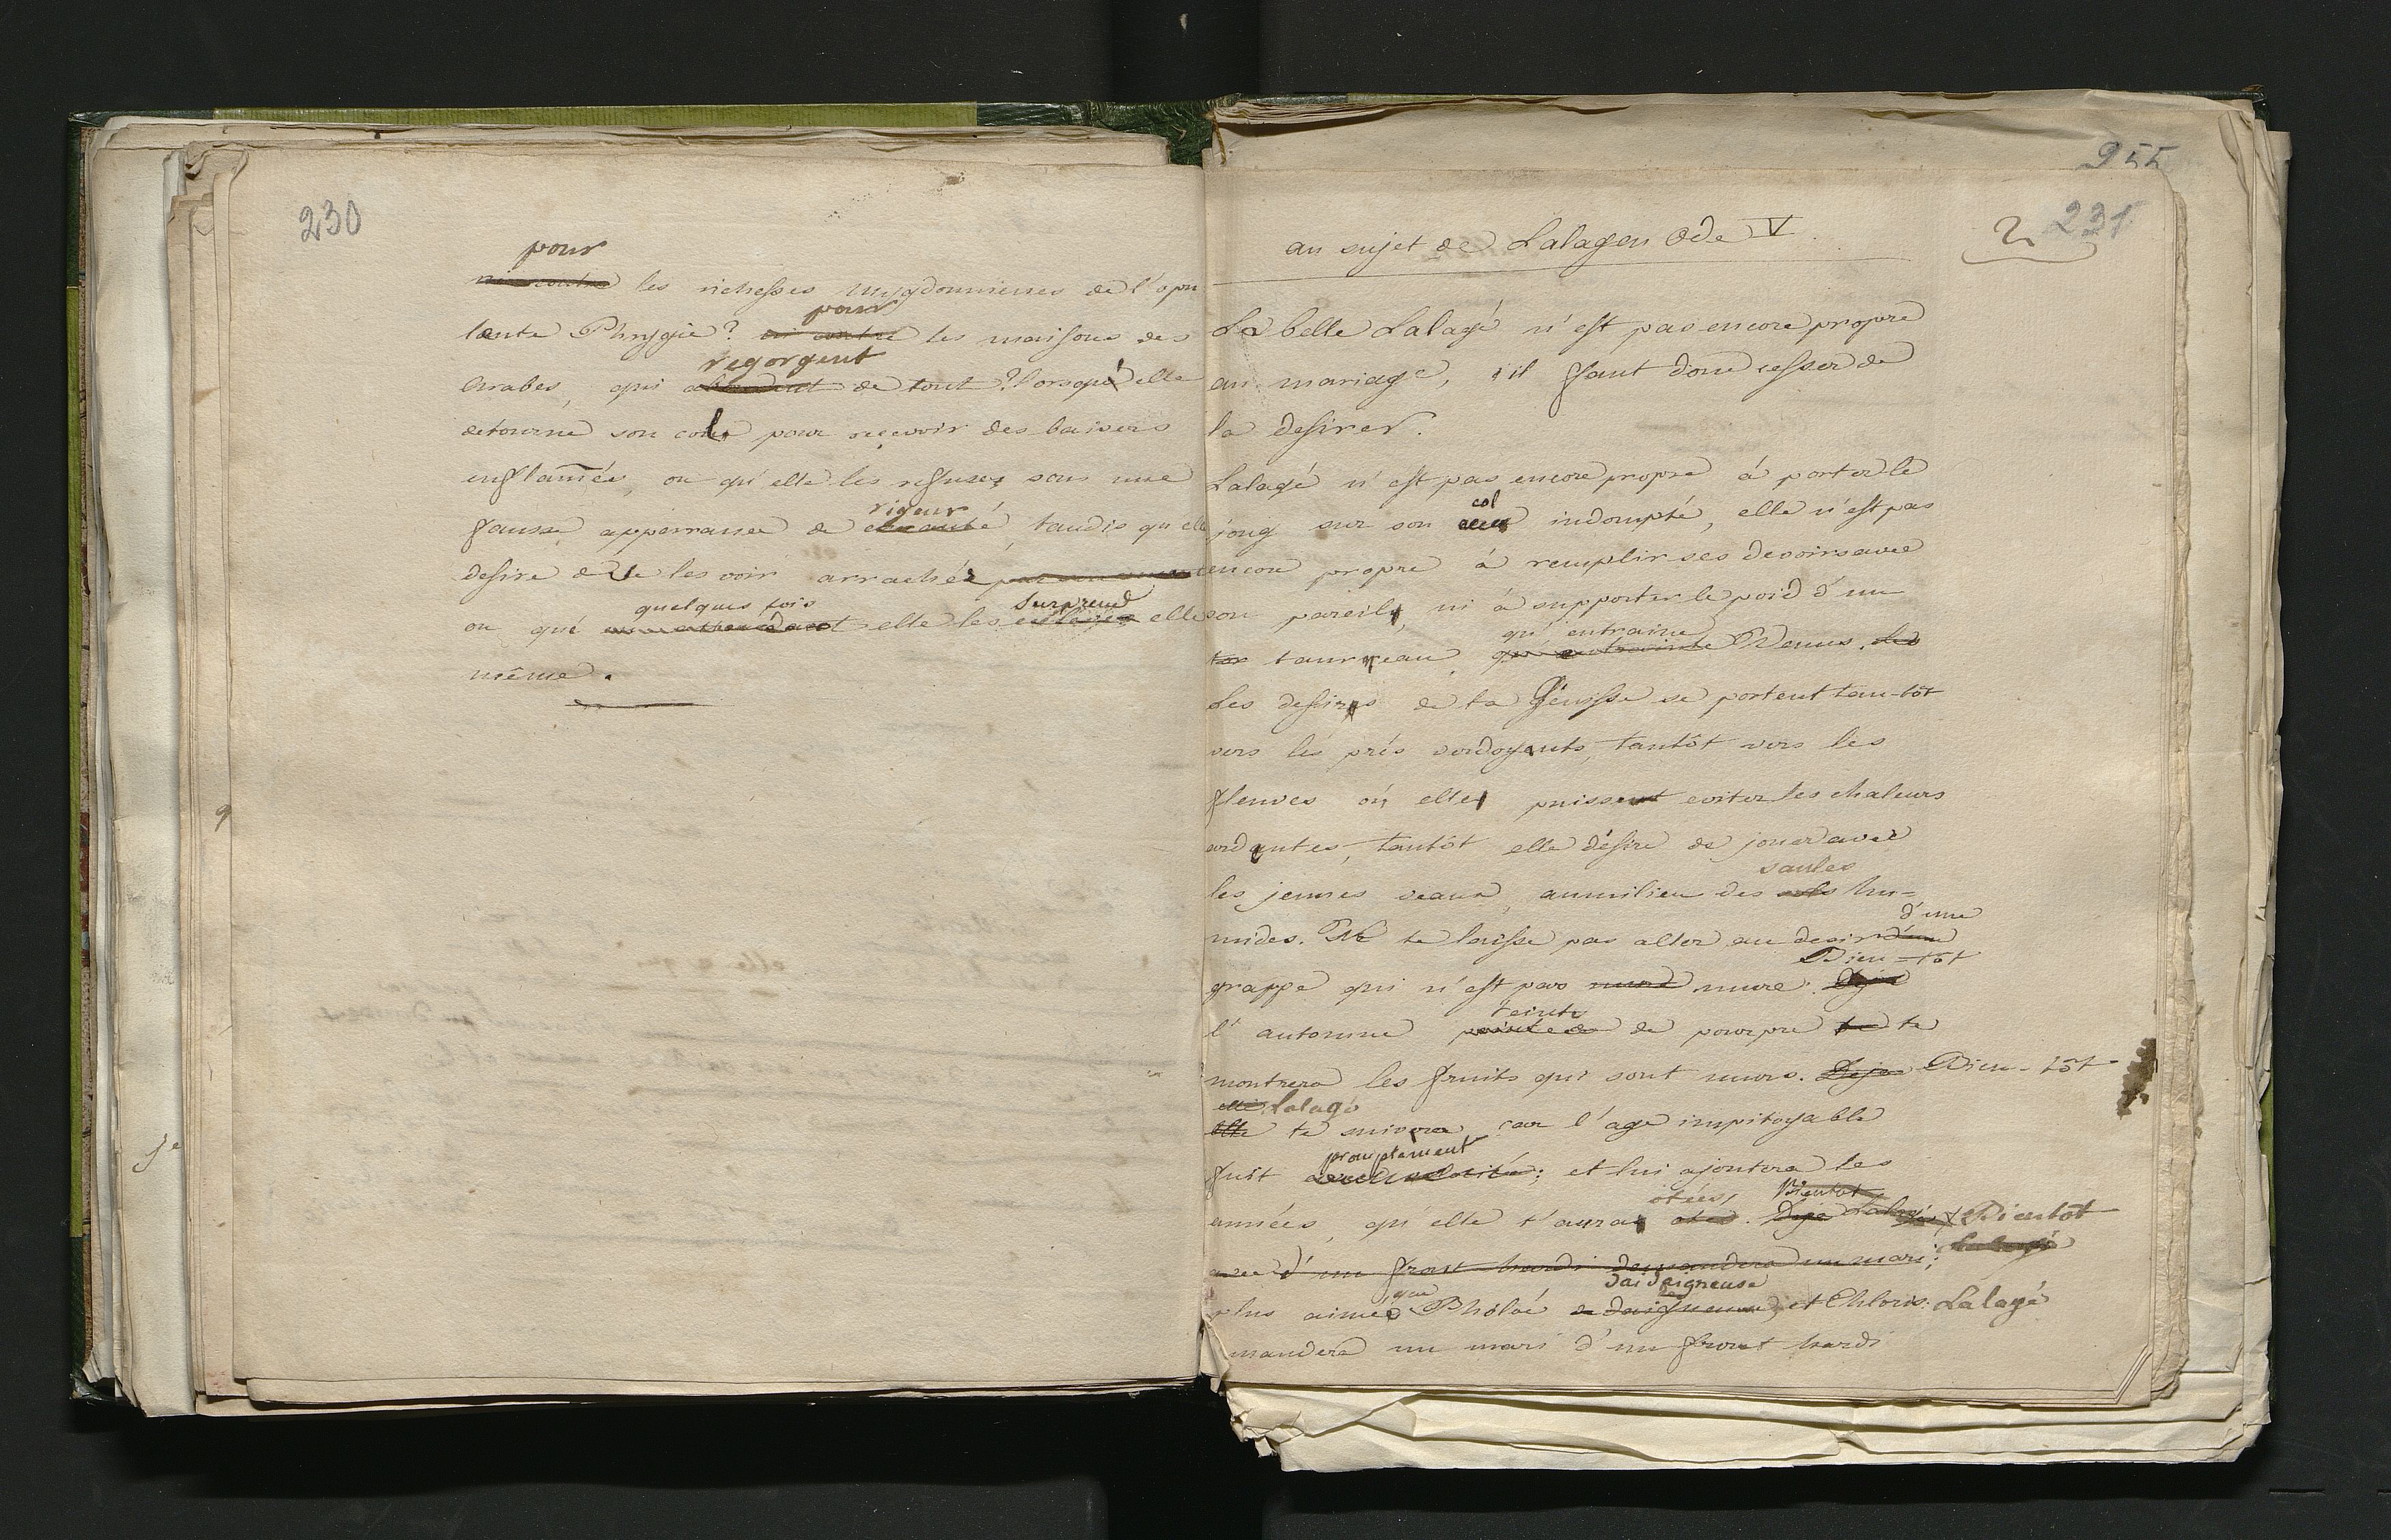 230
pour
les richesses mygdonniennes de l'opu
lante Phrygie? pour les maisons des
arabes, qui regorgent de tout? lorsque elle
detourne son col pour reçevoir des baisers
enflamés, ou qu'elle les refuse, sous une
fausse apparrance de rigeur, tandis qu'elle
desire de les voir arrachés
ou qué quelques fois elle les surprend elle
même.
955
2 231
au sujet de Lalagen Ode V.
La belle Lalagé n'est pas encore propre
au mariage, il faut donc cesser de
la desirer.
Lalagé n'est pas encore propre á porter le
joug sur son col indompté, elle n'est pas
encore propre á remplir ses devoirs avec
son pareil, ni á supporter le poid d'un
taureau qu'entraine Venus.
Les desirs de ta Génisse se portent tan-tôt
vers les prés verdoyants, tantôt vers les
fleuves oú elle puisse eviter les chaleurs
ardentes, tantôt elle désire de jouer avec
les jeunes veaux, aumilieu des saules hu-
mides. Ne te laisse pas aller au desir d'une
grappe qui n'est pas mure. Bien-tôt
l'automne teint de pourpre te
montrera les fruits qui sont murs. Bien-tôt
Lalagé
te suivra car l'age impitoyable
fuit promptement; et lui ajoutera les
années, qu'elle t'aura otées, Bientôt
avec d'un front hardi demandera un mari;
plus aimée que Pholoé daidaigneuse, et Chloris: Lalagé
mandera un mari d'un front hardi